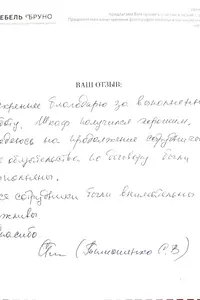 ЕБЕЛЬ БРУНО
ВАШ ОТЗЫВ:
скренне благодарю за выполненн
боту. Шкаф получился хорошим,
деюсь на продолжение сотрудниче
е обязательства по договору были
полнены.
се сотрудники были внимательны
жливы.
пасибо
(Тимошенко С.В)